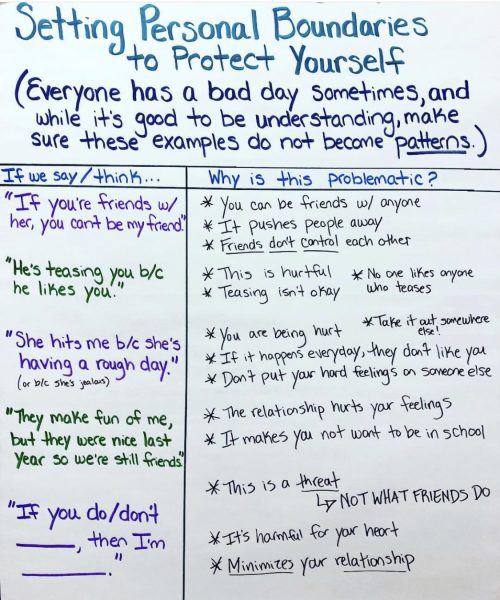 Setting Personal Boundaries
to Protect Yourself
(Everyone has a bad day sometimes, and
while it's good to be understanding, make
sure these examples do not become patterns.)
If we say/think...
Why is this problematic?
"If you're friends w/
her, you can't be my friend."
* You can be friends w/ anyone
* It pushes people away
* Friends don't control each other
"He's teasing you b/c
he likes you."
* This is hurtful
* Teasing isn't okay
* No one likes anyone
who teases
"She hits me b/c she's
having a rough day."
(or b/c she's jealous)
* You are being hurt
* Take it out somewhere
else!
* If it happens everyday, they don't like you
* Don't put your hard feelings on someone else
"They make fun of me,
but they were nice last
year so we're still friends."
* The relationship hurts your feelings
* It makes you not want to be in school
"If you do/don't
____, then I'm
____."
* This is a threat
↳ NOT WHAT FRIENDS DO
* It's harmful for your heart
* Minimizes your relationship